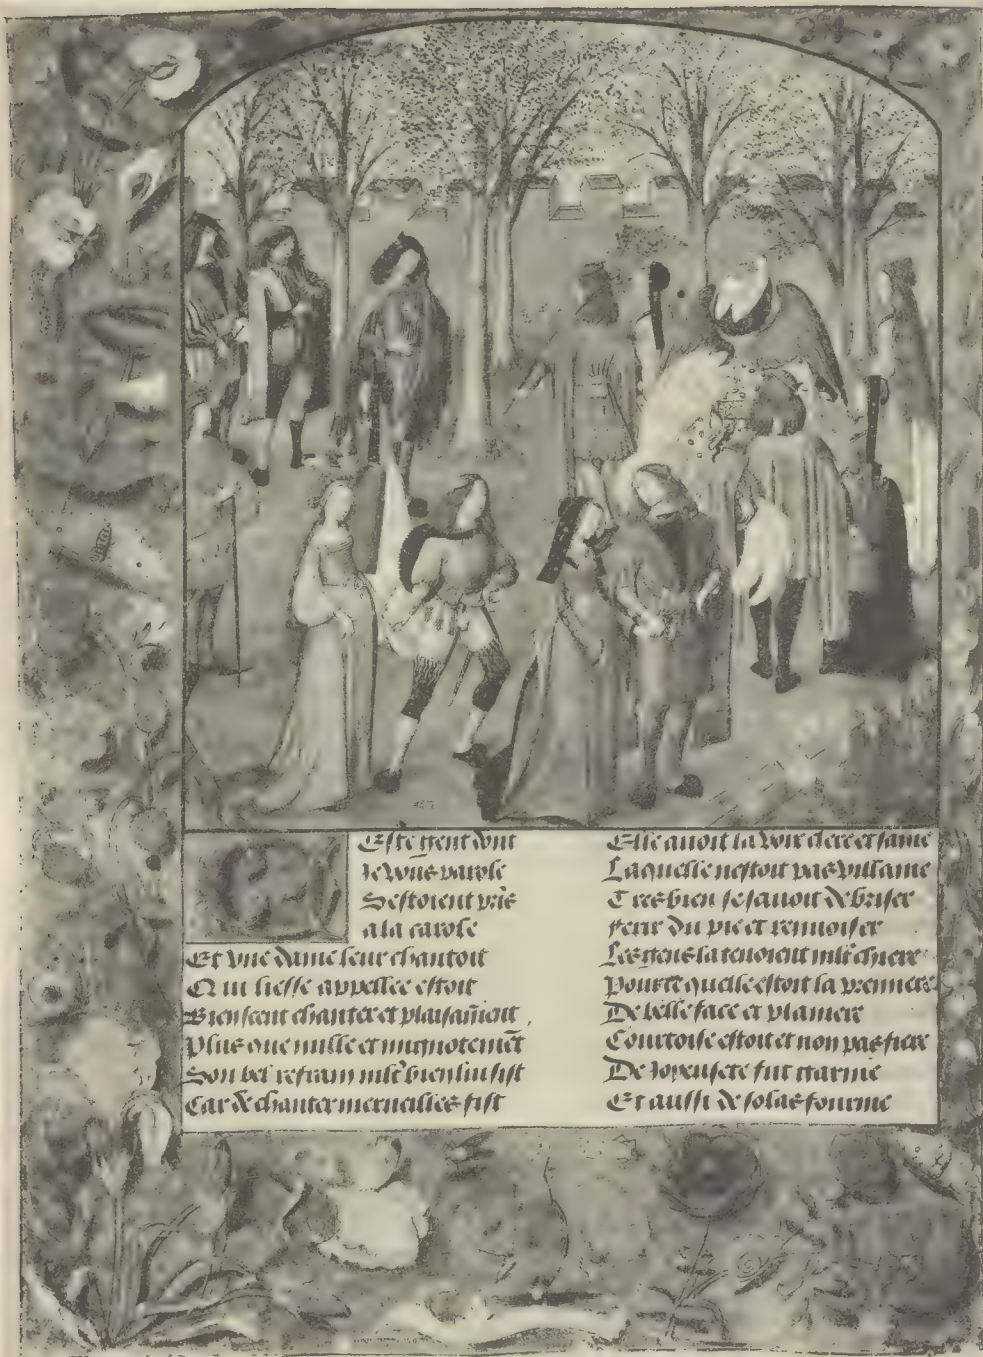 Este gent dont
Je vous parole
Sestoient pris
a la carole
Et vne dame leur chantoit
Qui liesse appellee estoit
Bien sceut chanter et plaisāment
Plus que nulle et mignotemēt
Son bel refrain mlt bien lui sist
Car de chanter merueilles fist
Elle auoit la voix clere et saine
Laquelle nestoit pas villaine
Tres bien se sauoit debriser
ferir du pie et renuoiser
Les gens la tenoient mlt chiere
Pource quelle estoit la premiere
De belle face et planiere
Courtoise estoit et non pas fiere
De ioyeusete fut garnie
Et aussi de solas fournie